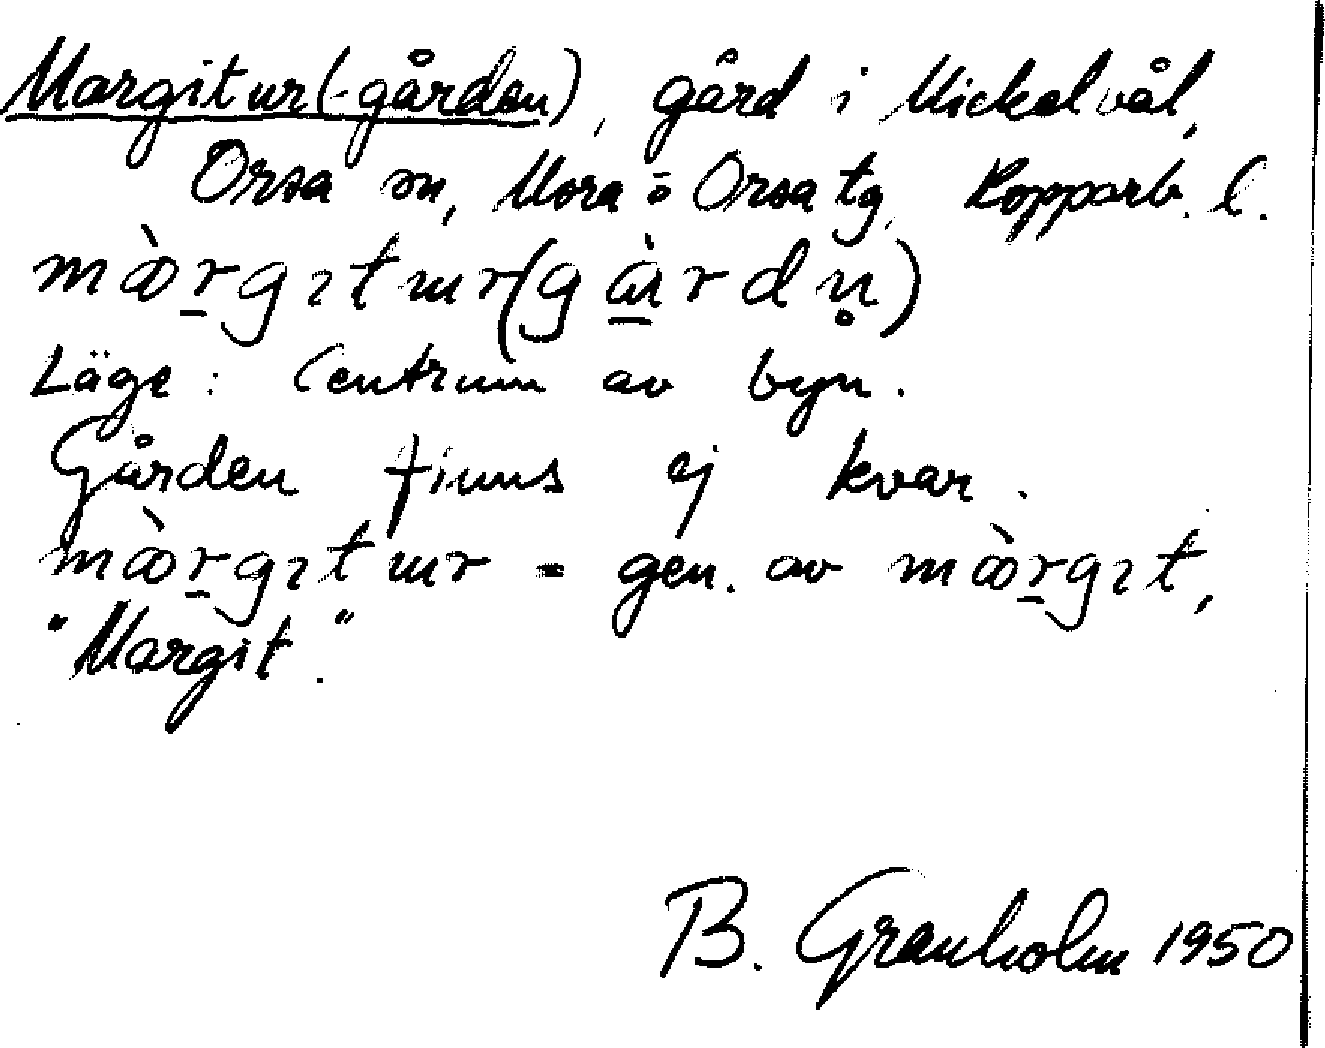 Margitur(-gården), gård i Mickelvål,
Orsa sn, Mora o Orsa tg, Kopparb. l.
mòrgıtɯr(gàrdn̥)
Läge: Centrum av byn.
Gården finns ej kvar.
mòrgıtɯr = gen. av mòrgıt,
"Margit".
B. Granholm 1950